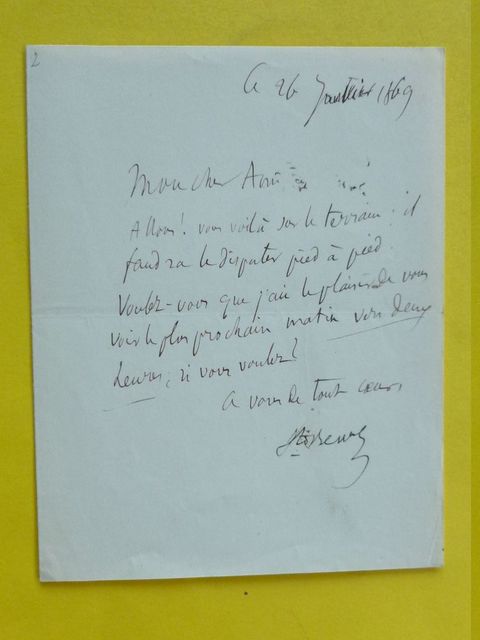 2
Ce 26 Janvier 1869
Mon cher Ami
Allons! vous voilà sur le terrain: il
faudra le disputer pied à pied.
Voulez-vous que j'aie le plaisir de vous
voir le plus prochain matin vers deux
heures, si vous voulez?
A vous de tout cœur,
Ste Beuve